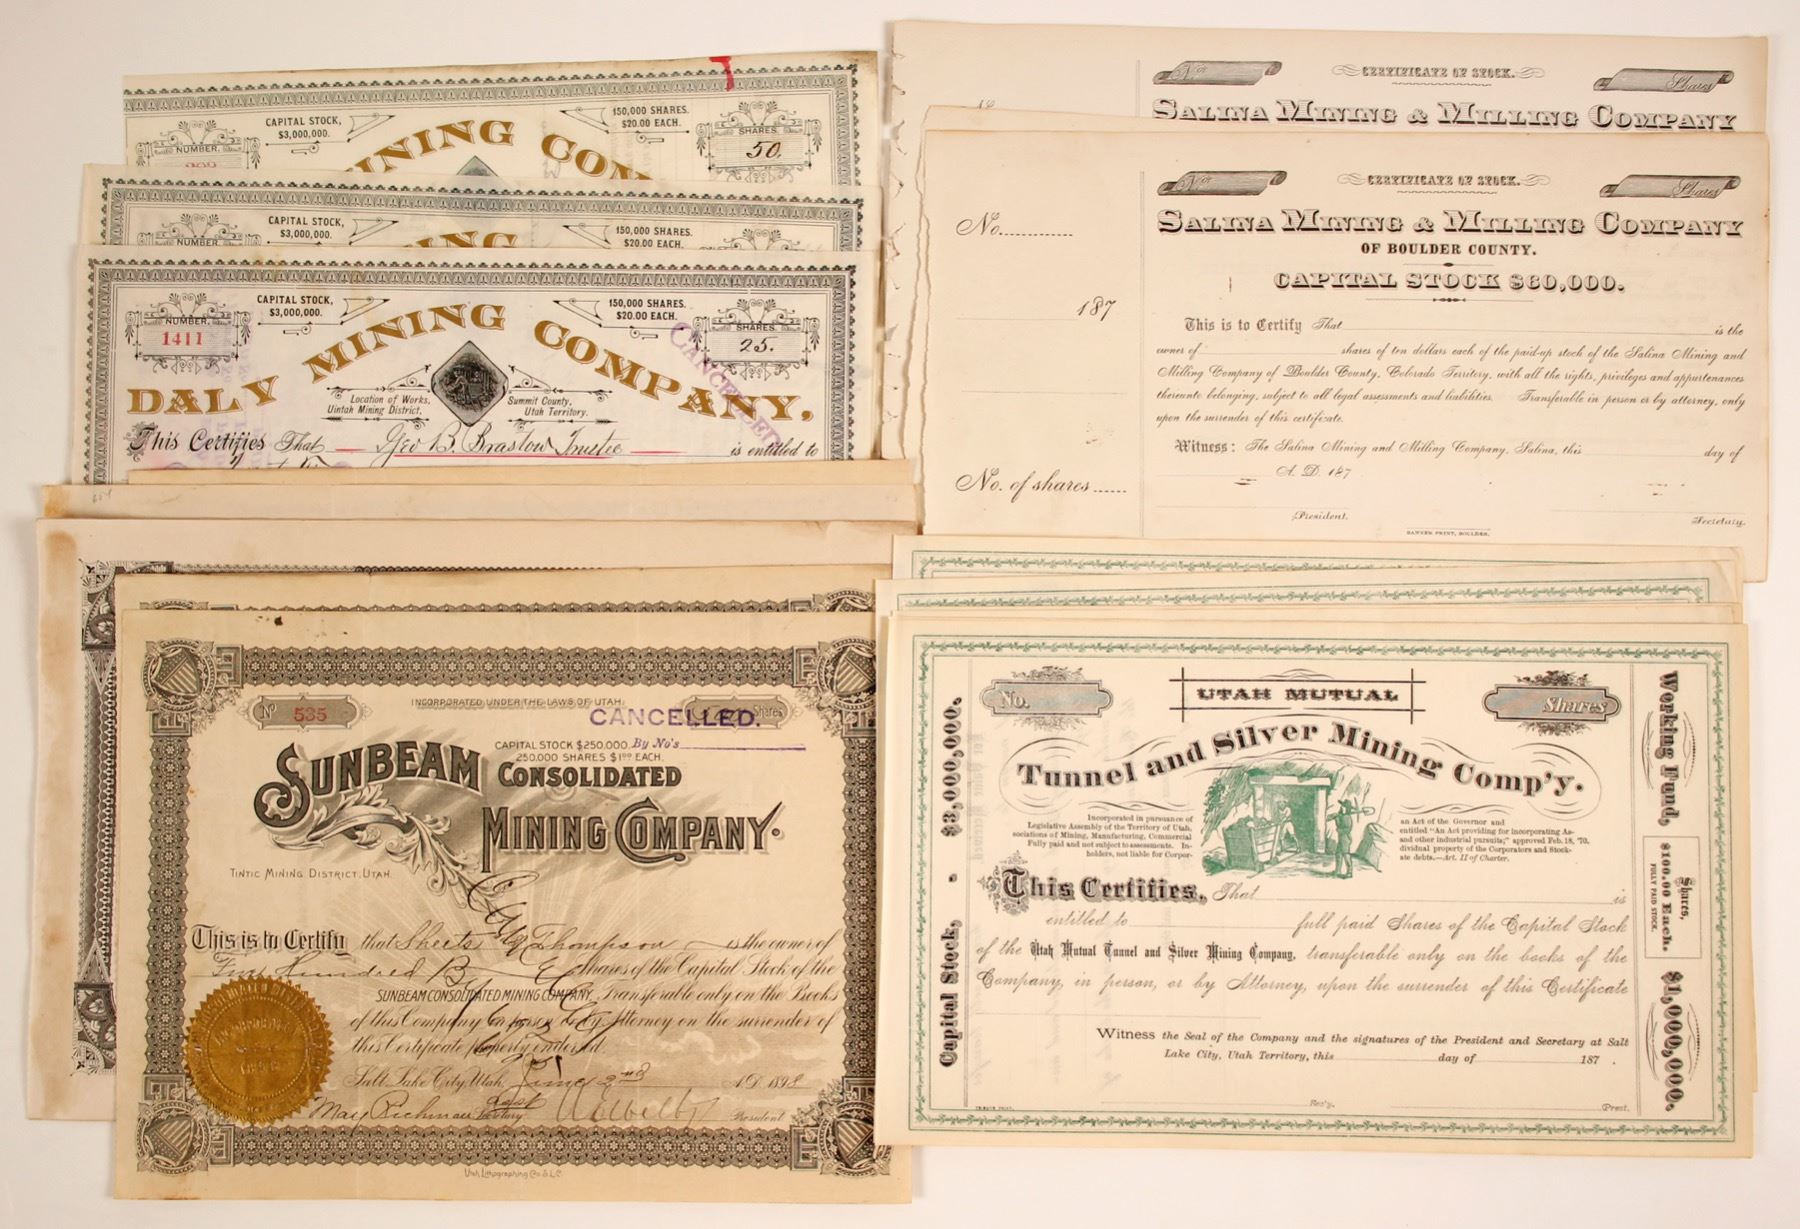 CAPITAL STOCK,
$3,000,000.
150,000 SHARES.
$20.00 EACH.
NUMBER.
SHARES.
50.
MINING COM
CAPITAL STOCK,
$3,000,000.
150,000 SHARES.
$20.00 EACH.
NUMBER
CAPITAL STOCK,
$3,000,000.
150,000 SHARES.
$20.00 EACH.
NUMBER.
1411
SHARES.
25.
DALY MINING COMPANY,
CANCELLED
Location of Works,
Uintah Mining District,
Summit County,
Utah Territory.
This Certifies That Geo B. Braslow Trustee is entitled to
No
CERTIFICATE OF STOCK.
Shares
SALINA MINING & MILLING COMPANY
No
CERTIFICATE OF STOCK.
Shares
No.
SALINA MINING & MILLING COMPANY
OF BOULDER COUNTY.
CAPITAL STOCK $60,000.
187
This is to Certify That is the
owner of shares of ten dollars each of the paid-up stock of the Salina Mining and
Milling Company of Boulder County, Colorado Territory, with all the rights, privileges and appurtenances
thereunto belonging, subject to all legal assessments and liabilities. Transferable in person or by attorney, only
upon the surrender of this certificate.
Witness: The Salina Mining and Milling Company, Salina, this day of
A. D. 187
No. of shares
President.
Secretary.
BANNER PRINT, BOULDER.
No 535
INCORPORATED UNDER THE LAWS OF UTAH.
Shares
CANCELLED.
CAPITAL STOCK $250,000. By No's
250,000 SHARES $1.00 EACH.
SUNBEAM CONSOLIDATED
MINING COMPANY.
TINTIC MINING DISTRICT, UTAH.
This is to Certify that Sheets & Thompson is the owner of
Five Hundred Shares of the Capital Stock of the
SUNBEAM CONSOLIDATED MINING COMPANY, Transferable only on the Books
of this Company in person or by Attorney on the surrender of
this Certificate properly endorsed.
Salt Lake City, Utah, June 2nd A.D. 1898
May Richman asst Secretary
President
Utah Lithographing Co. S.L.C.
No.
UTAH MUTUAL
Shares
Tunnel and Silver Mining Comp'y.
Incorporated in pursuance of
Legislative Assembly of the Territory of Utah,
sociations of Mining, Manufacturing, Commercial
Fully paid and not subject to assessments. In-
holders, not liable for Corpor-
an Act of the Governor and
entitled "An Act providing for incorporating As-
and other industrial pursuits;" approved Feb. 18, '70.
dividual property of the Corporators and Stock-
ate debts.—Art. II of Charter.
This Certifies, That is
entitled to full paid Shares of the Capital Stock
of the Utah Mutual Tunnel and Silver Mining Company, transferable only on the books of the
Company, in person, or by Attorney, upon the surrender of this Certificate
Witness the Seal of the Company and the signatures of the President and Secretary at Salt
Lake City, Utah Territory, this day of 187 .
Sec'y.
Prest.
Capital Stock, - $3,000,000.
Working Fund, $1,000,000.
Shares,
$100.00 Each.
FULLY PAID STOCK.